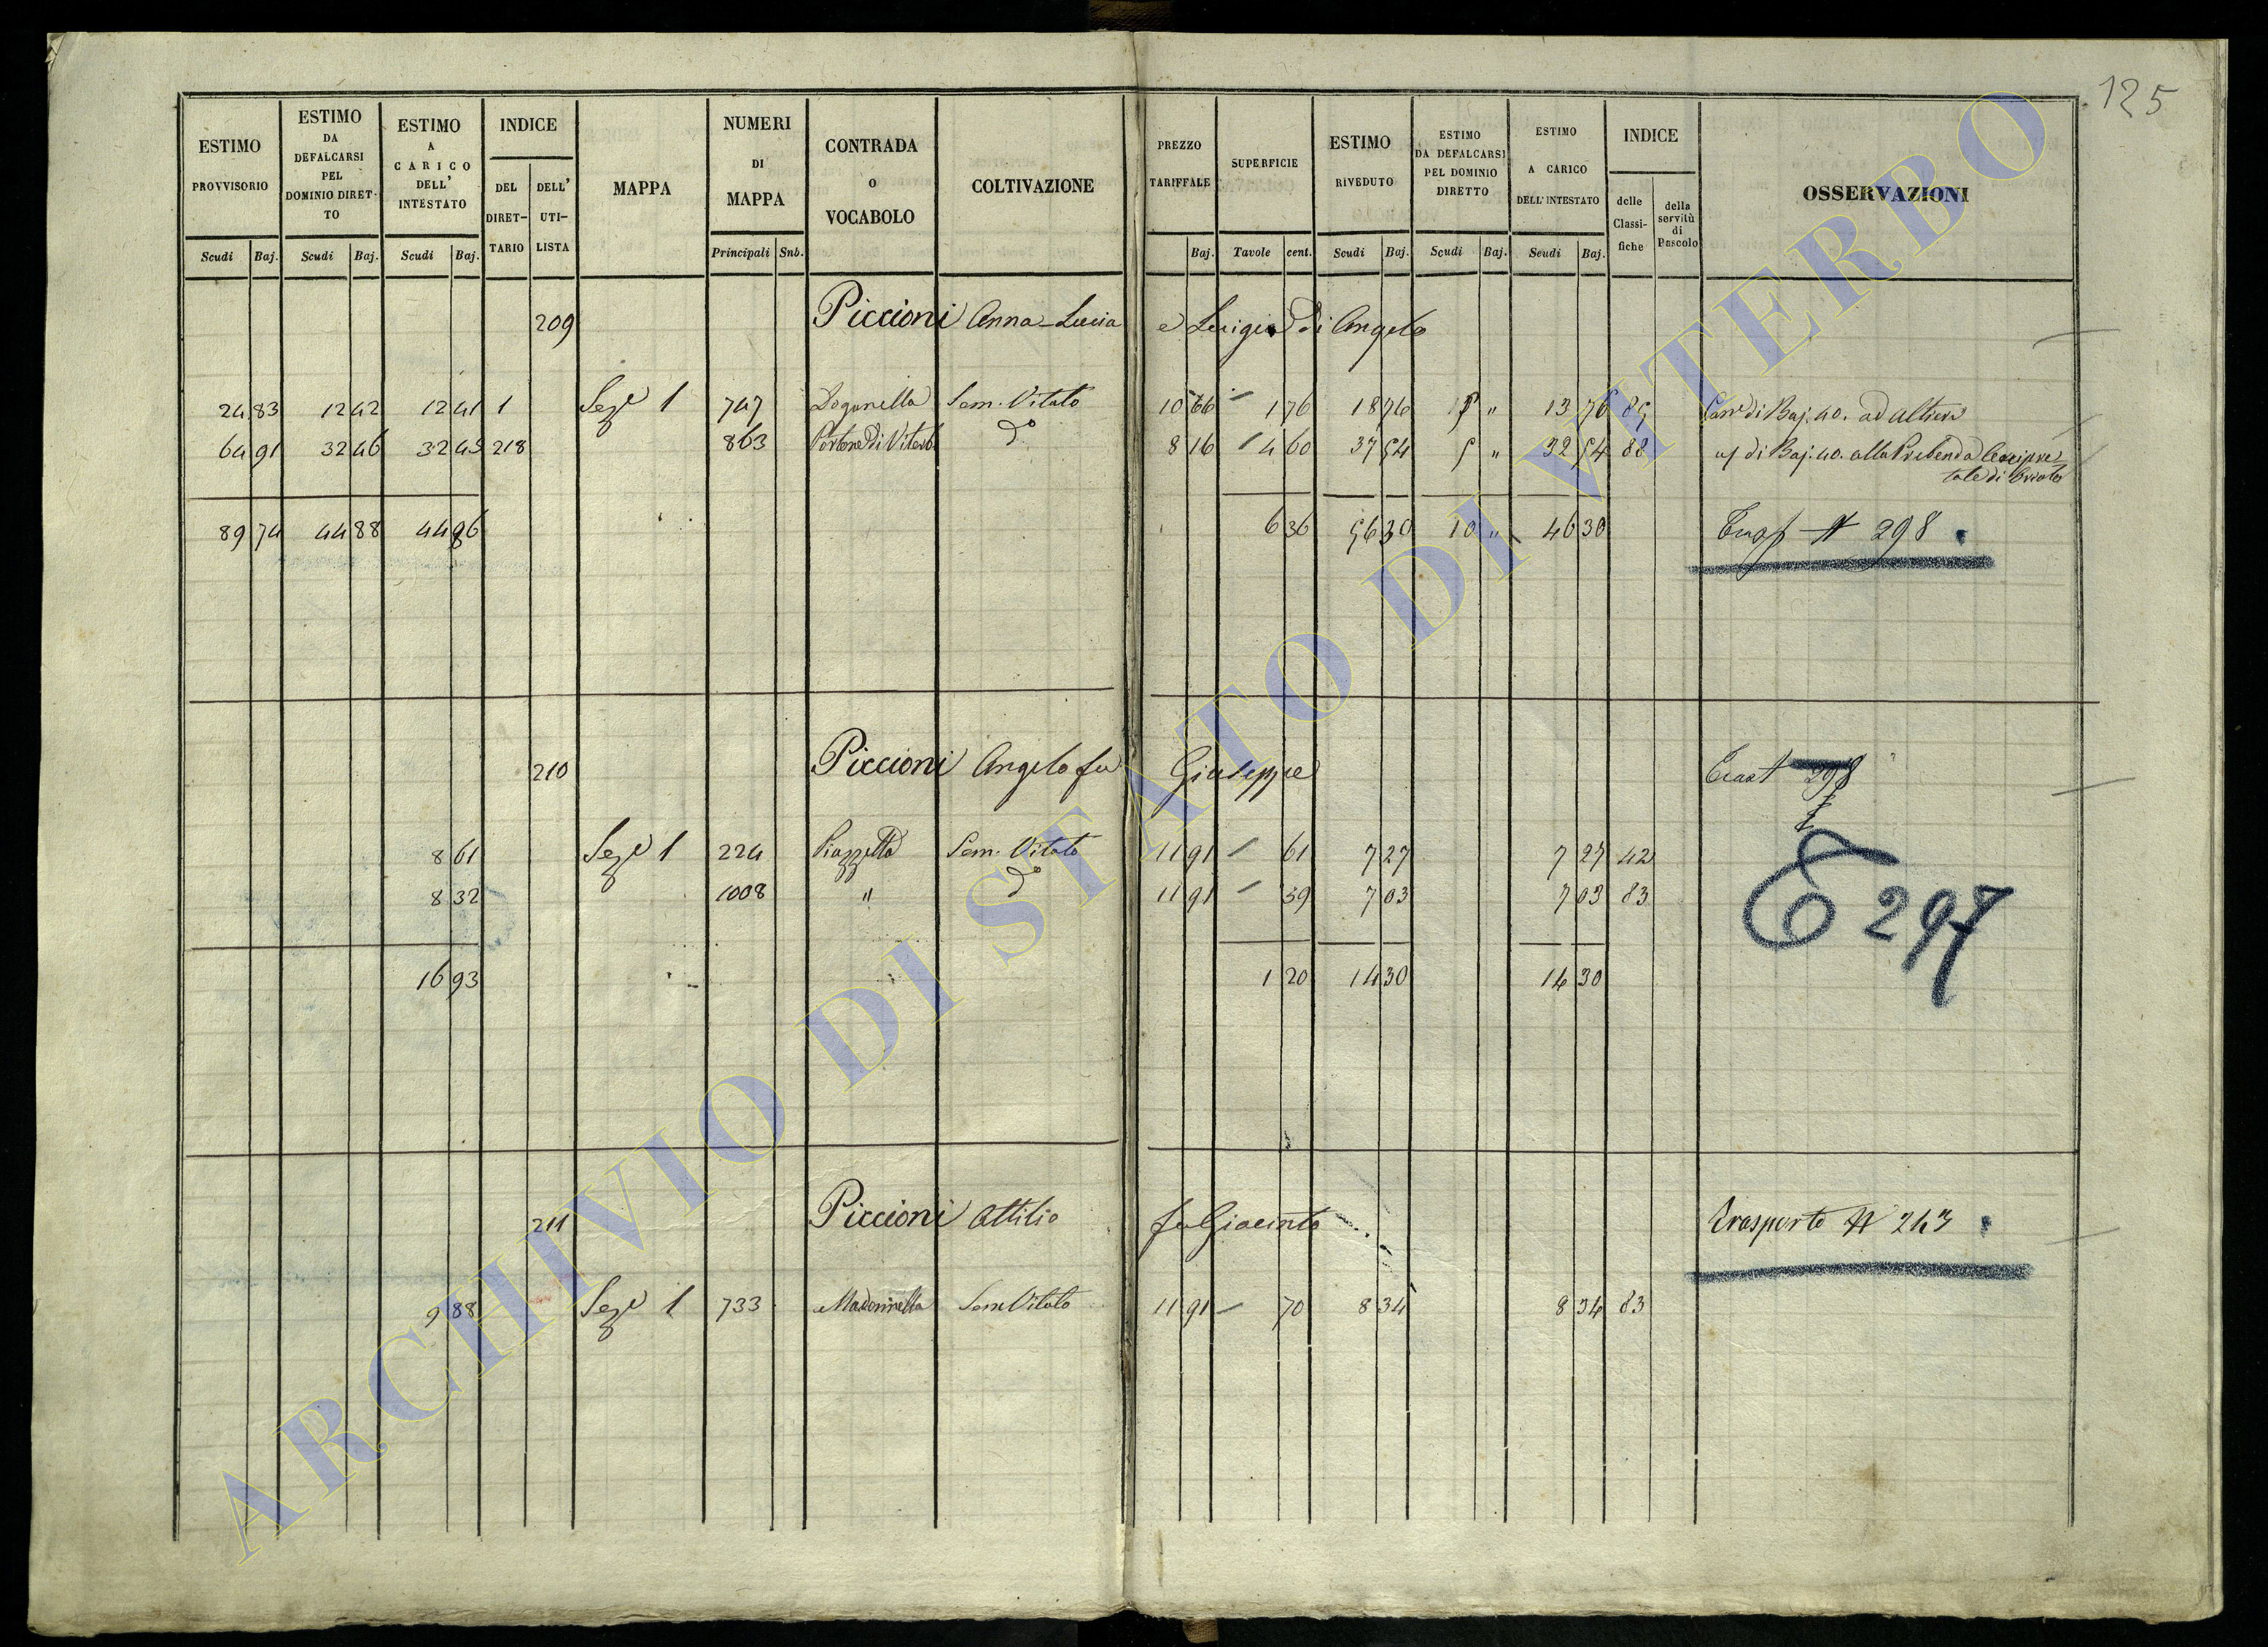 125
ESTIMO PROVVISORIO Scudi Baj.
ESTIMO DA DEFALCARSI PEL DOMINIO DIRET-TO Scudi Baj.
ESTIMO A CARICO DELL' INTESTATO Scudi Baj.
INDICE DEL DIRET-TARIO DELL' UTI-LISTA
MAPPA
NUMERI DI MAPPA Principali Snb.
CONTRADA O VOCABOLO
COLTIVAZIONE
PREZZO TARIFFALE Baj.
SUPERFICIE Tavole cent.
ESTIMO RIVEDUTO Scudi Baj.
ESTIMO DA DEFALCARSI PEL DOMINIO DIRETTO Scudi Baj.
ESTIMO A CARICO DELL' INTESTATO Scudi Baj.
INDICE delle Classi-fiche della servitù di Pascolo
OSSERVAZIONI
209 Piccioni Anna-Lucia e Luigia di Angelo
24 83 12 42 12 41 1 Sez.e 1 747 Doganella Sem. Vitato 10 66 1 76 18 76 5 " 13 76 85 di Baj. 40. ad Altieri
64 91 32 46 32 45 218 863 Portone di Viterbo do 8 16 4 60 37 54 5 " 32 54 88 di Baj. 40. alla Prebenda Arcipre
tale di Oriolo
89 74 44 88 44 86 6 36 56 30 10 " 46 30 Trasp N 298
210 Piccioni Angelo fu Giuseppe Trast 298
8 61 Sez.e 1 224 Piazzetta Sem. Vitato 11 91 61 7 27 7 27 42
8 32 1008 " do 11 91 59 7 03 7 03 83
T 297
16 93 1 20 14 30 14 30
211 Piccioni Attilio fu Giacinto Trasporto N 243
9 88 Sez.e 1 733 Madonnella Sem Vitato 11 91 70 8 34 8 34 83
ARCHIVIO DI STATO DI VITERBO